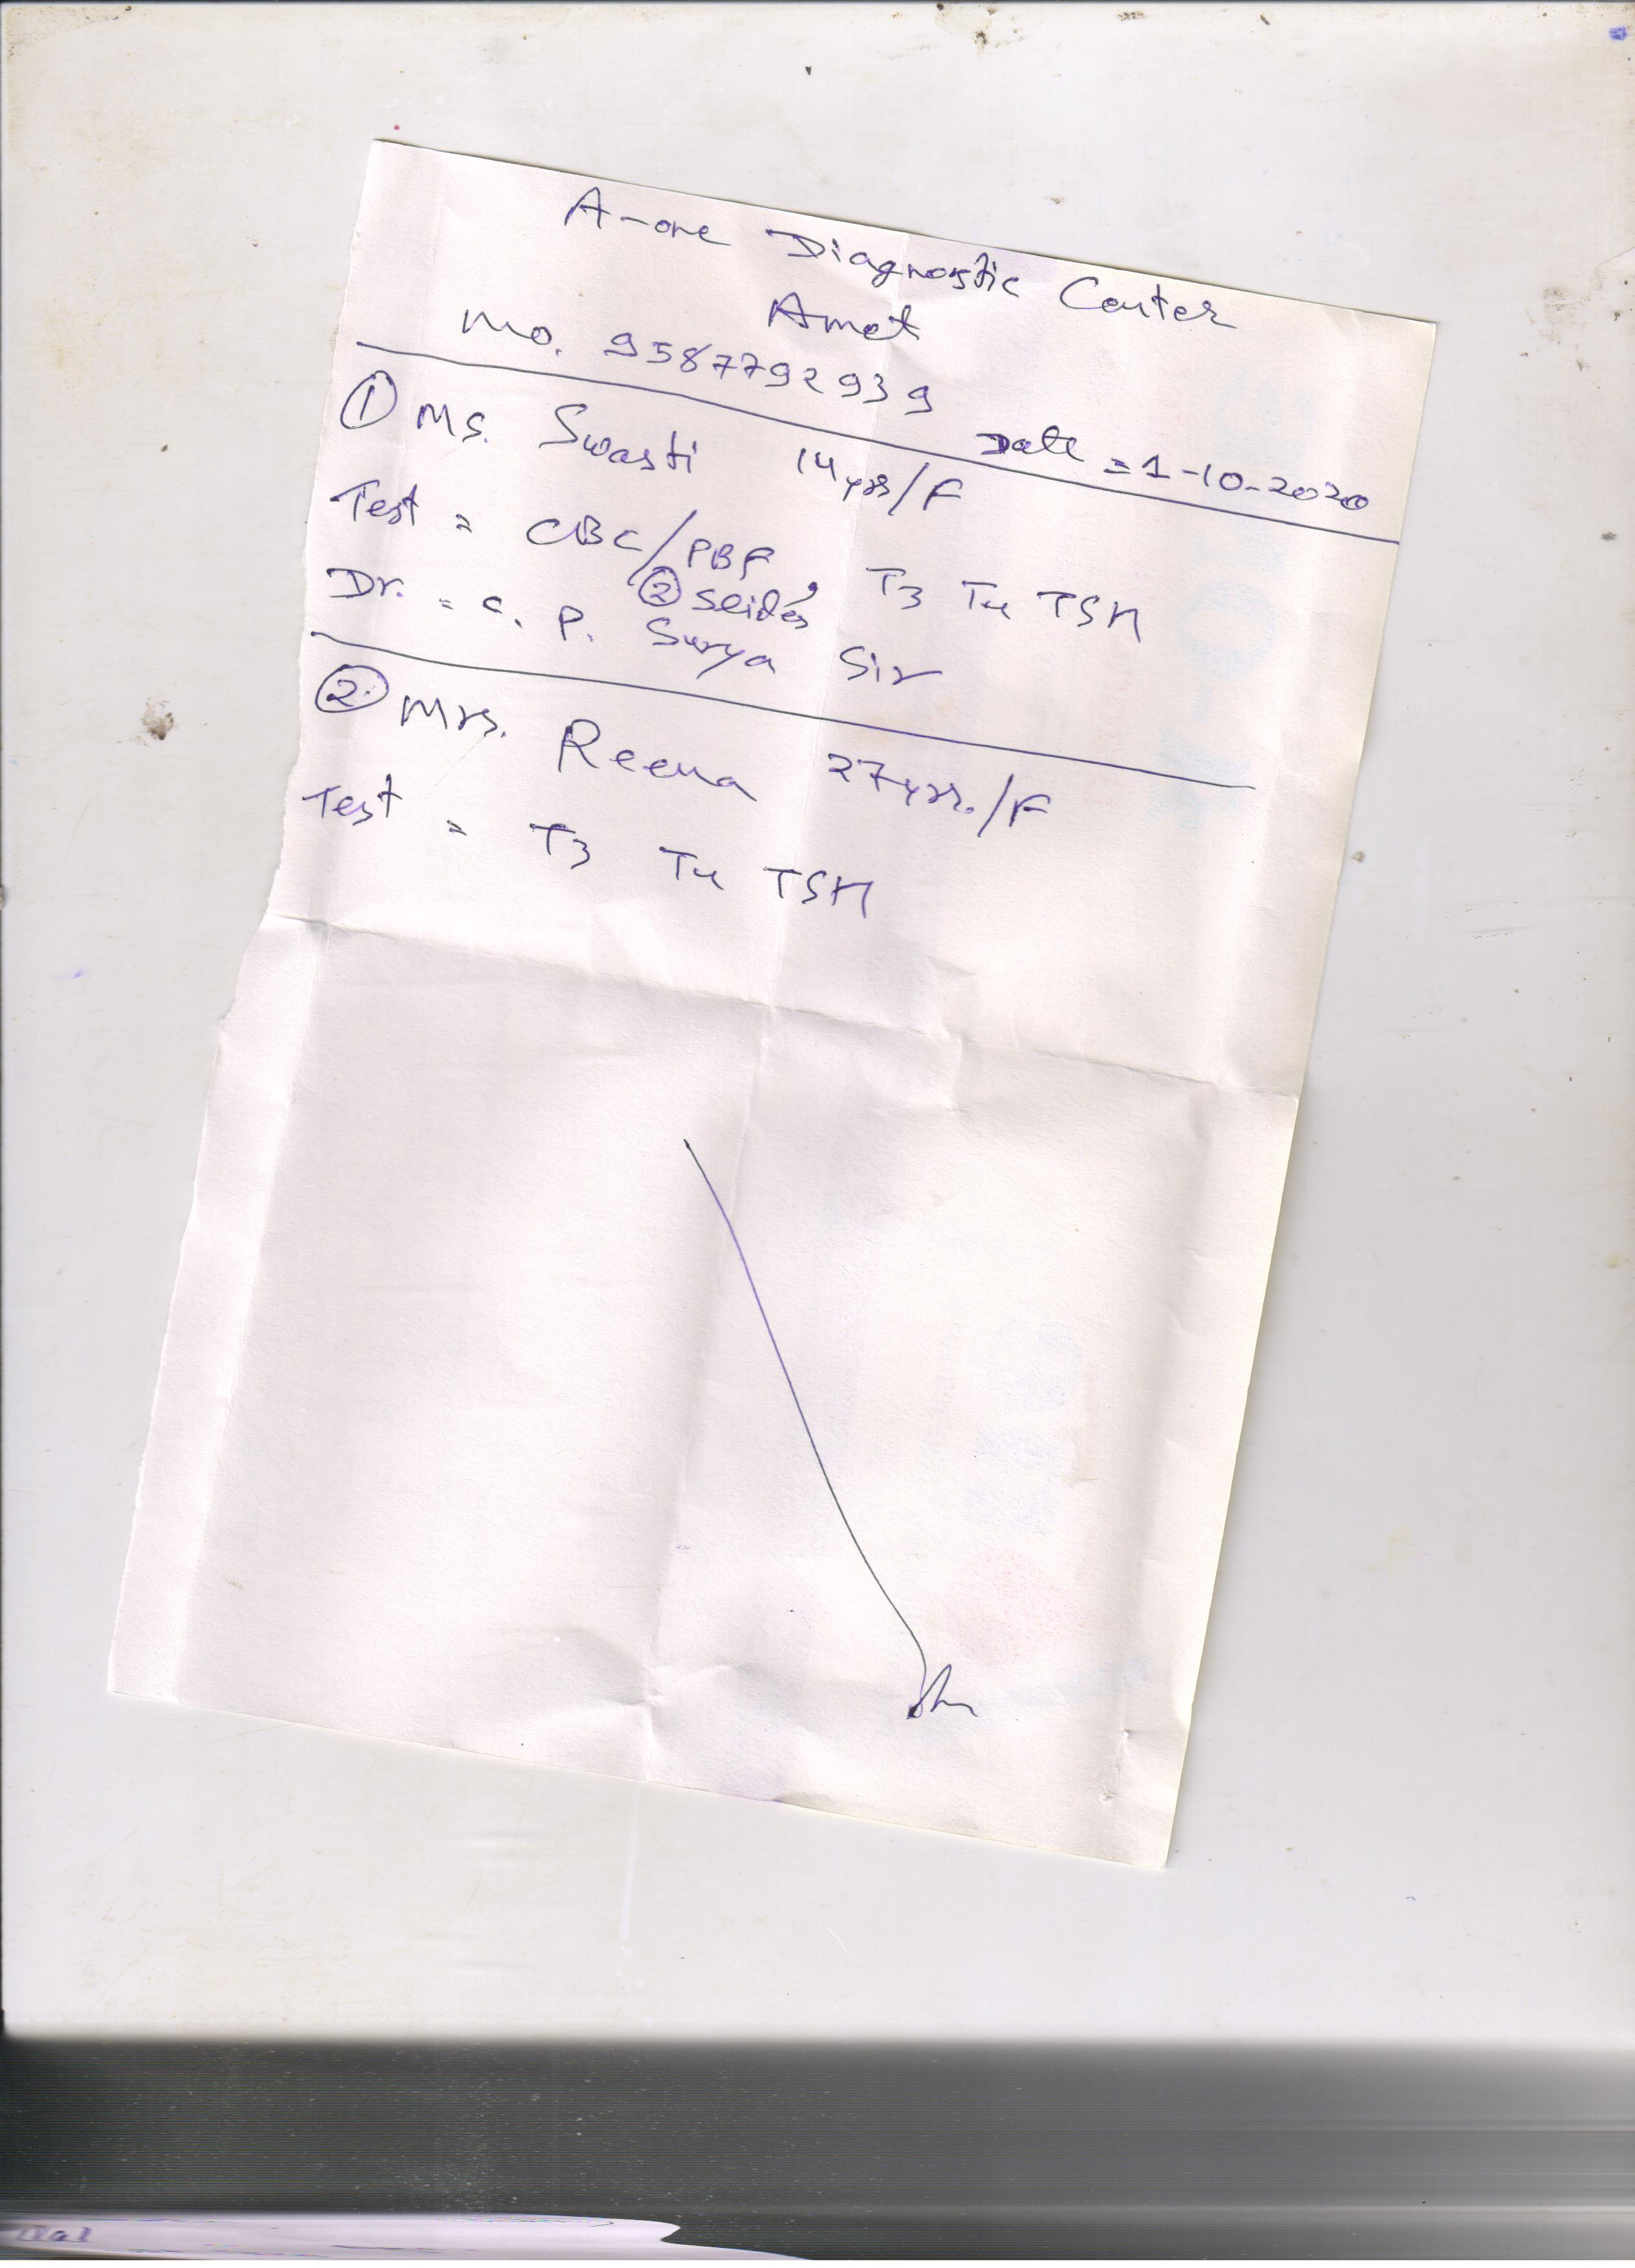 A-one Diagnostic Center
Amet
Mo. 9587792939
Date = 1-10-2020
① Ms. Swasti 14 yrs/F
Test = CBC/PBF, T3 T4 TSH
② Slides
Dr. = C. P. Surya Sir
② Mrs. Reena 27 yrs./F
Test = T3 T4 TSH